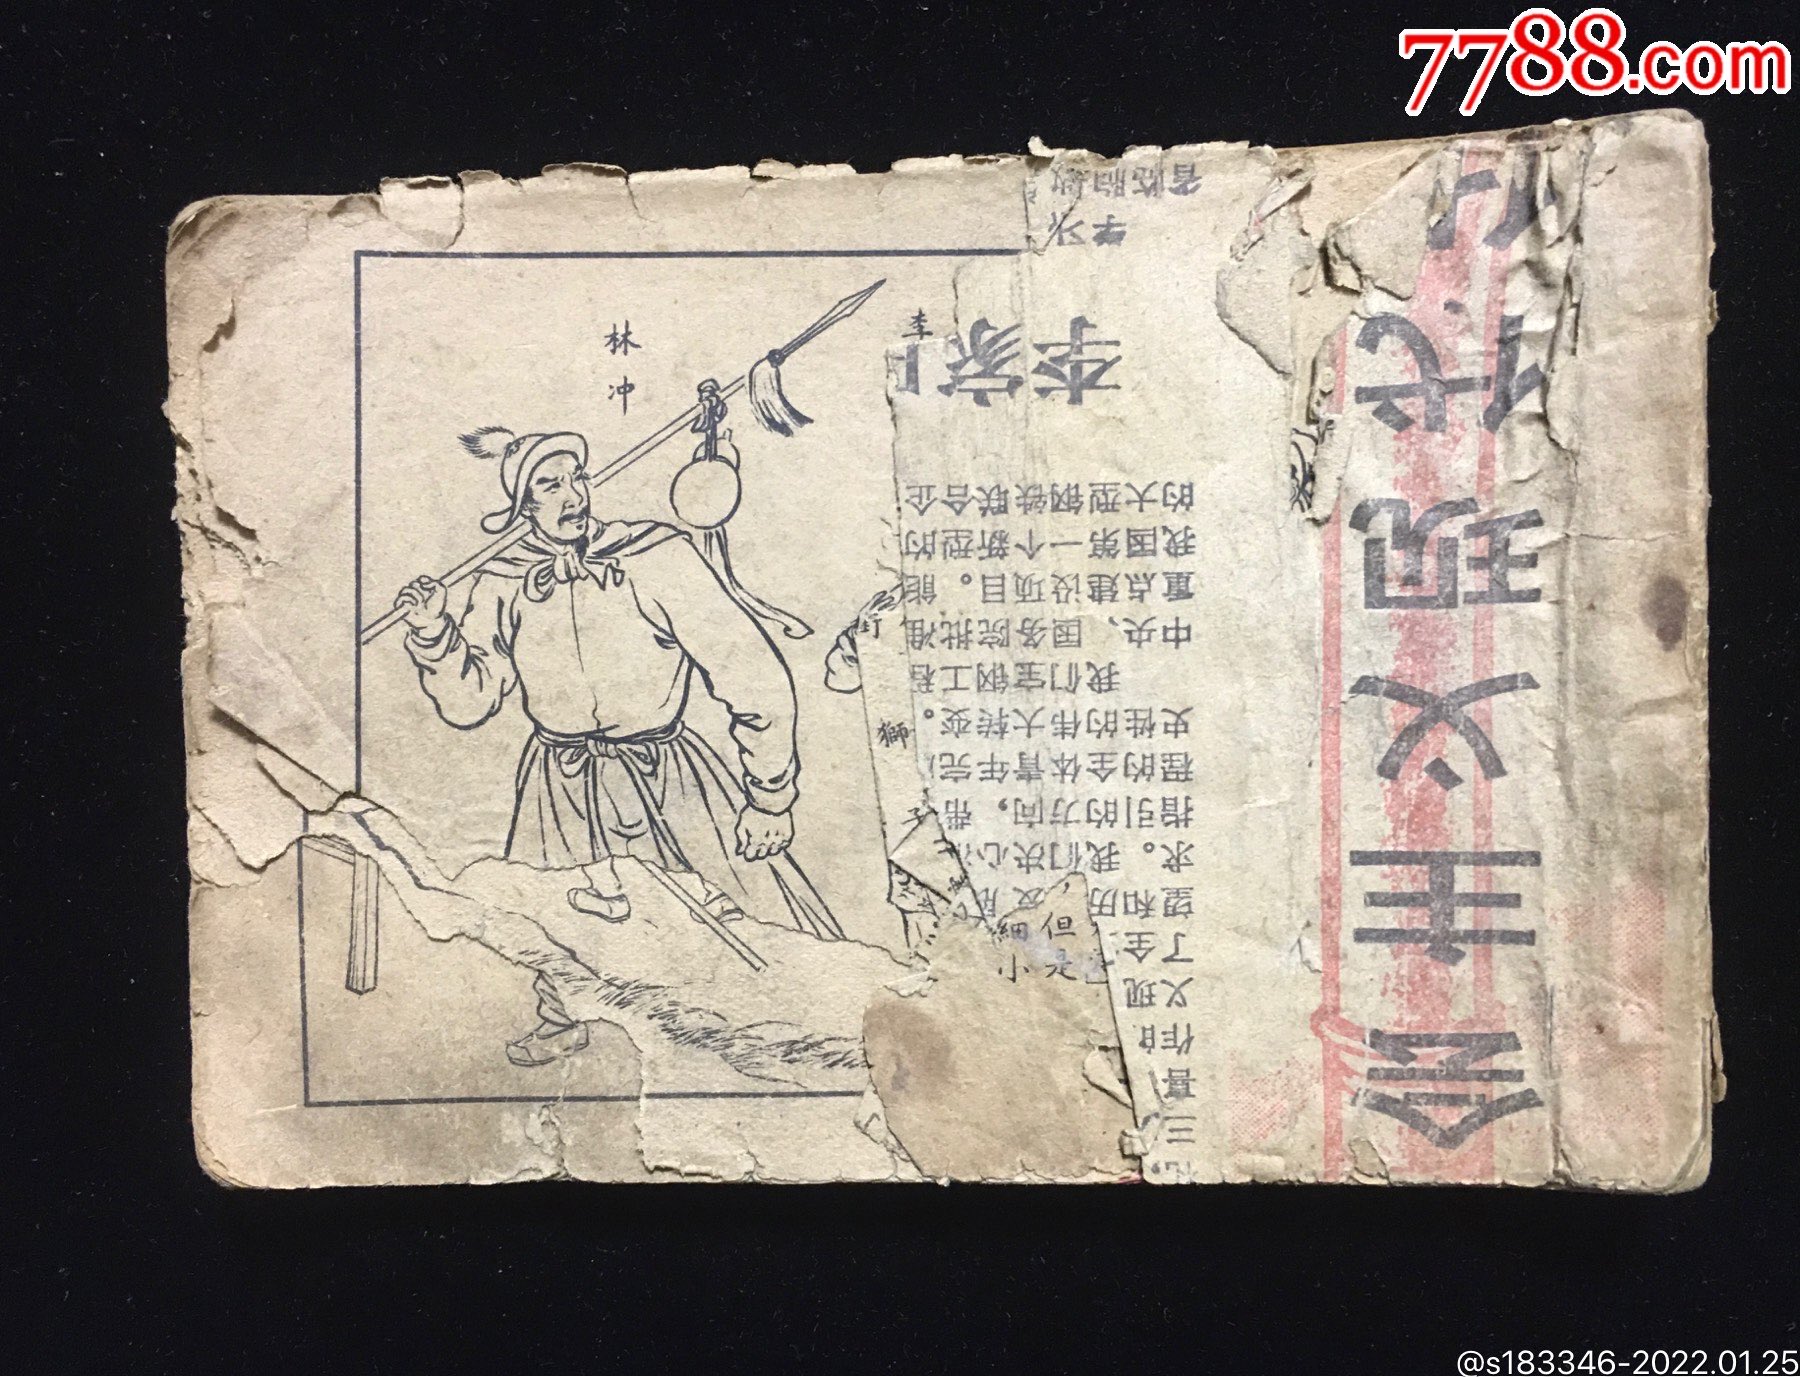 7788.com
林冲
李
獅子
街
細小
但
会主义现代化
三
喜
作的
义现
了全
望和历
求。我们决心
指引的方向，带
程的全体青年完
史性的伟大转变。
我们宝钢工程
中央、国务院批准
重点建设项目。能
我国第一个新型的
的大型钢铁联合企
李家
省临朐
@s183346-2022.01.25